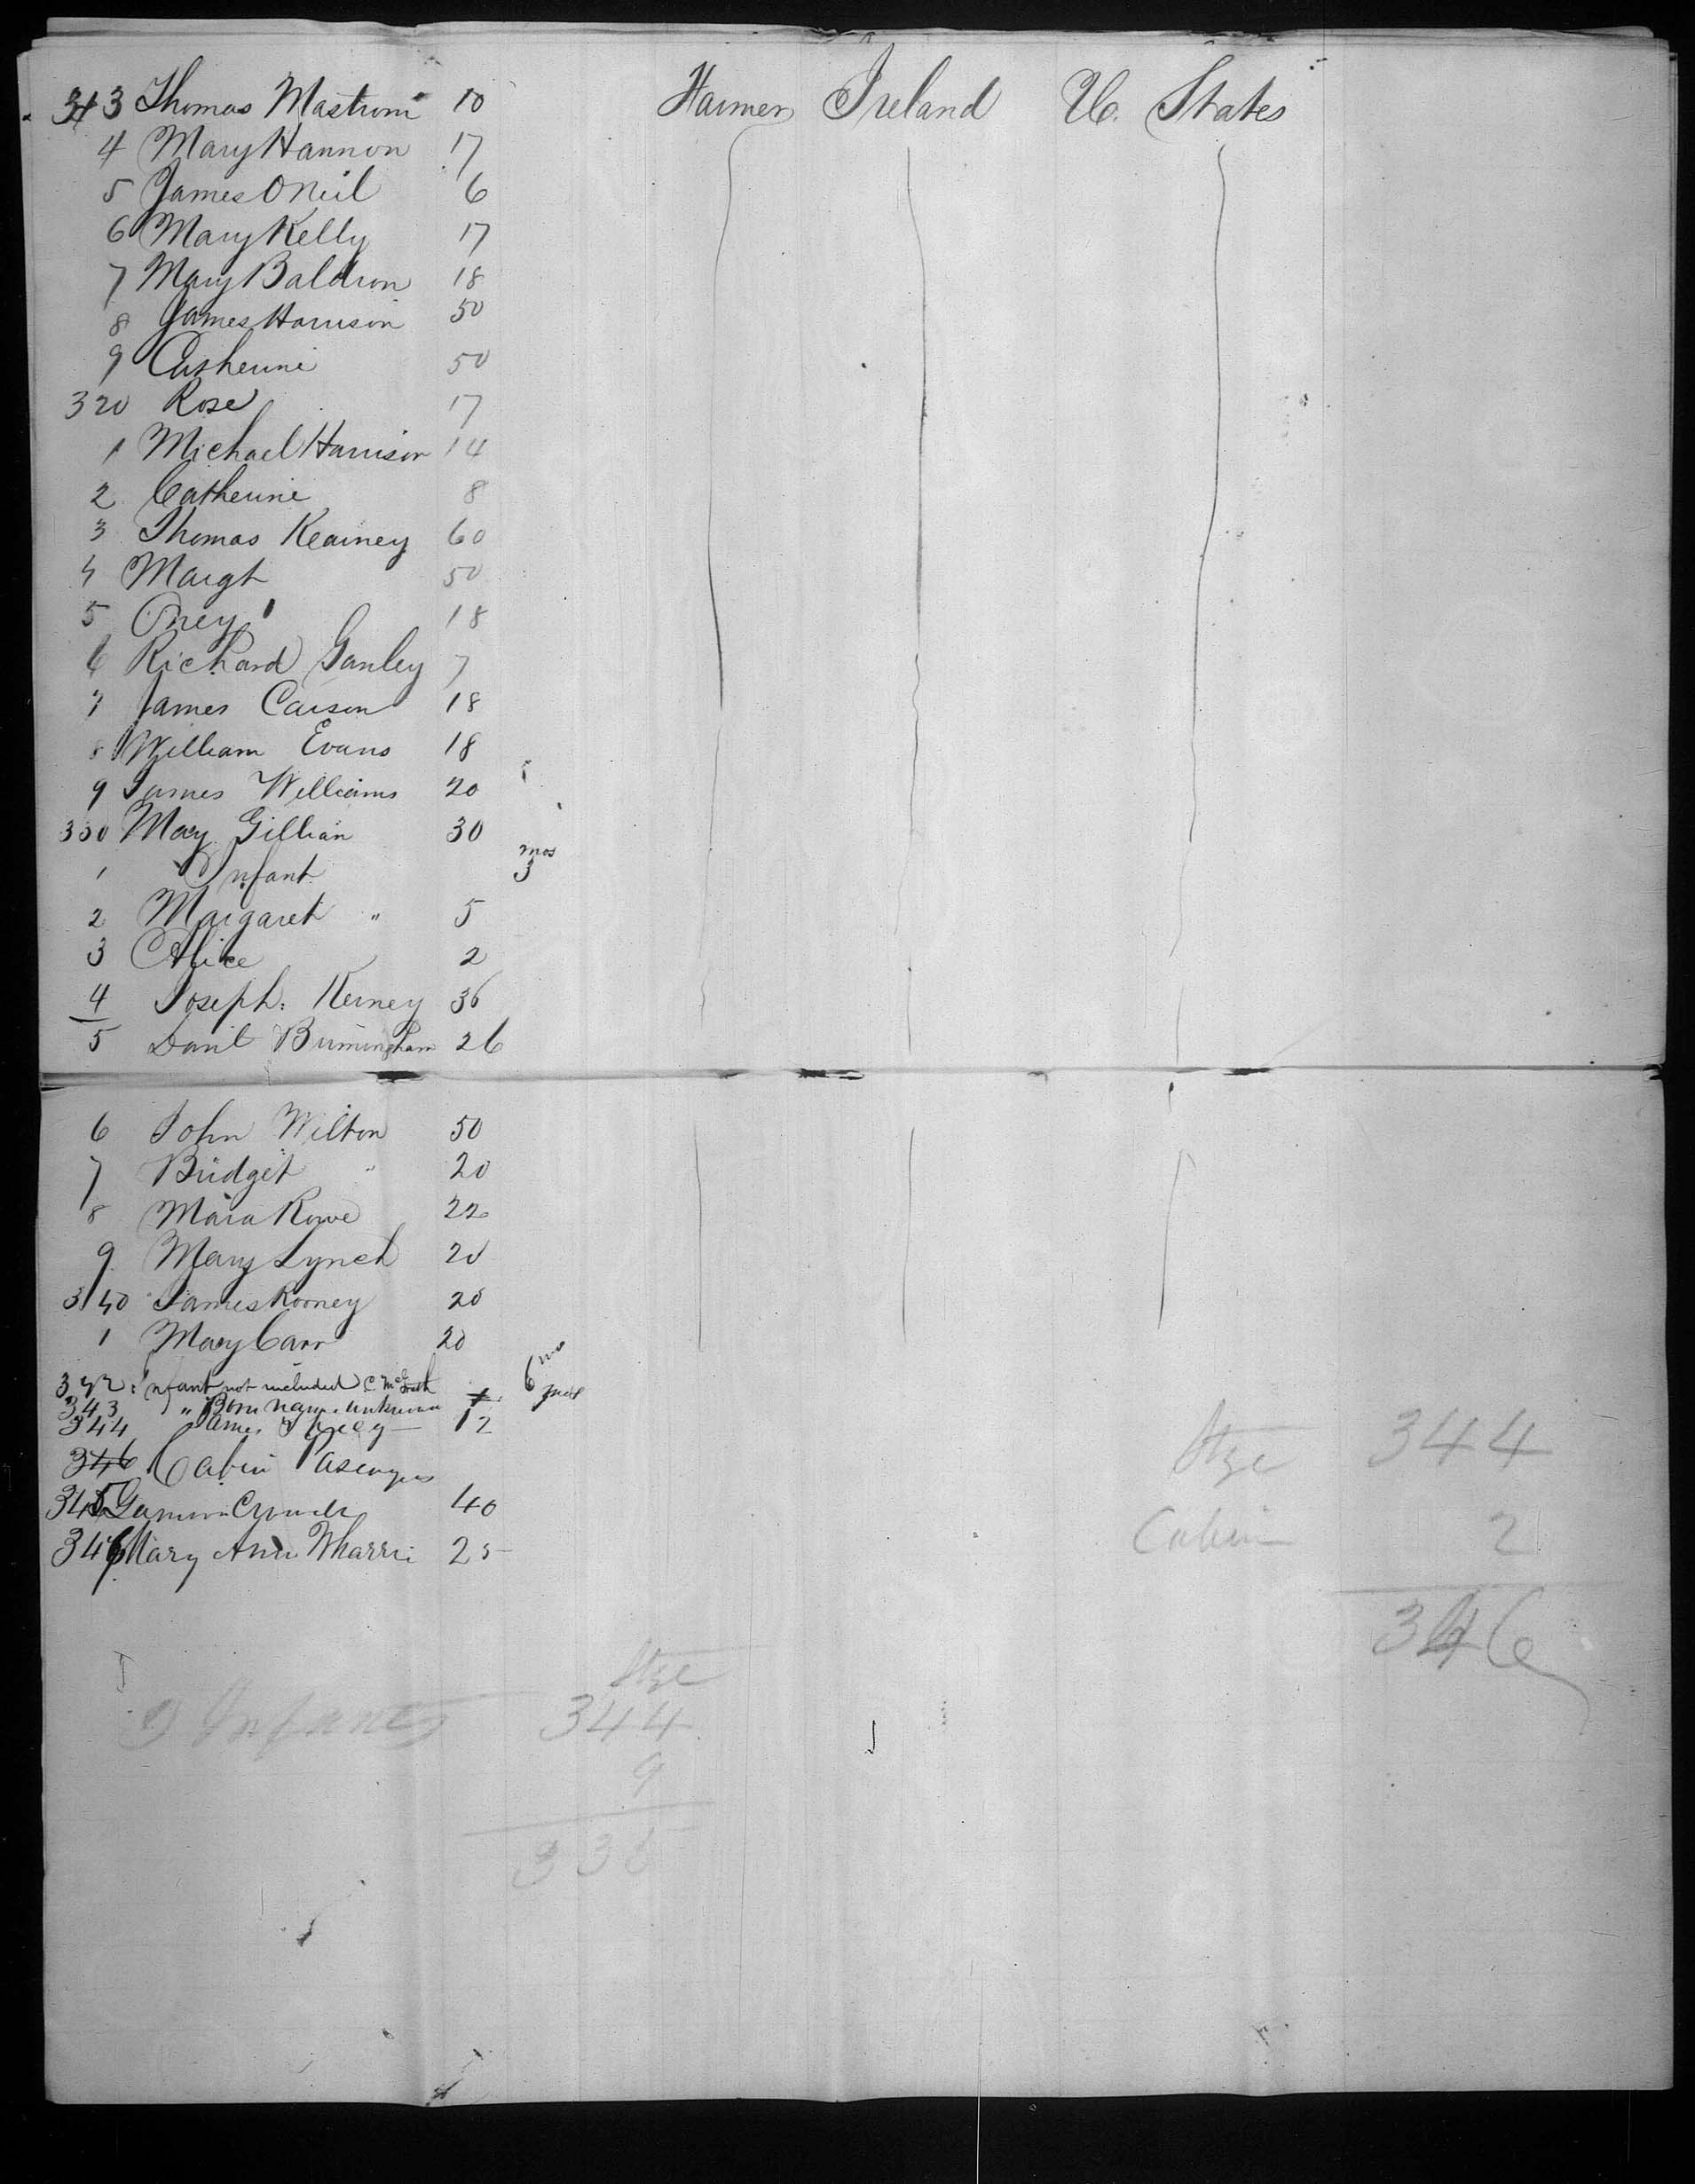 313 Thomas Mastroni 10 Harmer Ireland U. States
4 Mary Hannon 17
5 James ONeil 6
6 Mary Kelly 17
7 Mary Baldron 18
8 James Harrison 50
9 Catherine 50
320 Rose 17
1 Michael Harrison 14
2 Catherine 8
3 Thomas Kearney 60
4 Margt 50
5 18
6 Richard Ganley 7
7 James Carson 18
8 William Evans 18
9 James Williams 20
330 Mary Gillian 30
1 Infant 3 mos
2 Margaret " 5
3 Alice 2
4 Joseph. Kerney 36
5 Danl Birmingham 26
6 John Wilton 50
7 Bridget " 20
8 Maria Rowe 22
9 Mary Lynch 20
340 James Rooney 20
1 Mary Carr 20
342 Infant not included C McGrath 6 mos
343 " Born name unknown
344 James 12
346 Cabin Pasengers
345 40
346 Mary Ann Wharri 25
Stge 344
Cabin 2
346
9 Infants
Stge
344
9
335